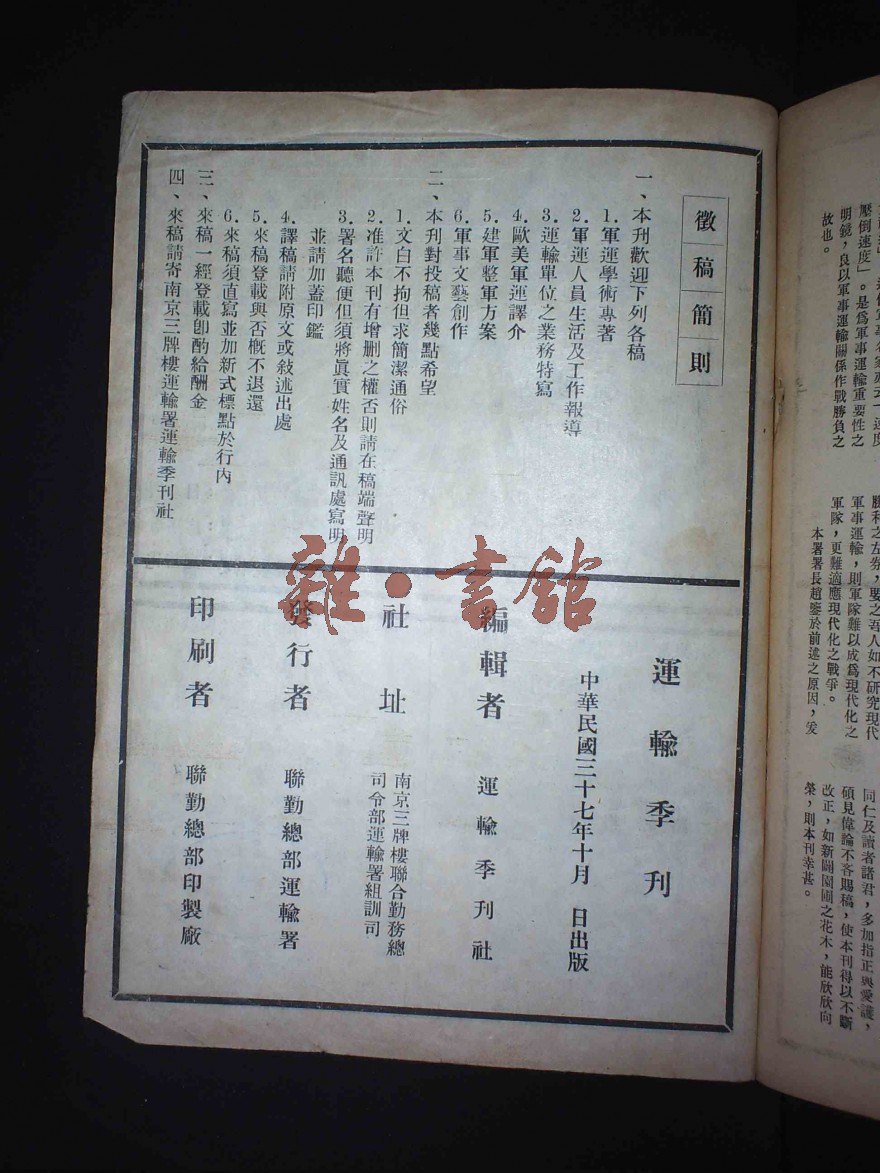 徵稿簡則
一、本刊歡迎下列各稿
1.軍運學術專著
2.軍運人員生活及工作報導
3.運輸單位之業務特寫
4.歐美軍運譯介
5.建軍整軍方案
6.軍事文藝創作
二、本刊對投稿者幾點希望
1.文白不拘但求簡潔通俗
2.准許本刊有增删之權否則請在稿端聲明
3.署名聽便但須將眞實姓名及通訊處寫明
並請加蓋印鑑
4.譯稿請附原文或敍述出處
5.來稿登載與否槪不退還
6.來稿須直寫並加新式標點於行內
三、來稿一經登載卽酌給酬金
四、來稿請寄南京三牌樓運輸署運輸季刊社
運輸季刊
中華民國三十七年十月 日出版
編輯者 運輸季刊社
社址 南京三牌樓聯合勤務總
司令部運輸署組訓司
發行者 聯勤總部運輸署
印刷者 聯勤總部印製廠
雜·書館
壓倒速度」。是爲軍事運輸重要性之
明鏡，良以軍事運輸關係作戰勝負之
故也。
勝利之左券，要之吾人如不研究現代
軍事運輸，則軍隊難以成爲現代化之
軍隊，更難適應現代化之戰爭。
本署署長趙鑒於前述之原因，爰
同仁及讀者諸君，多加指正與愛護，
碩見偉論不吝賜稿，使本刊得以不斷
改正，如新闢園圃之花木，能欣欣向
榮，則本刊幸甚。